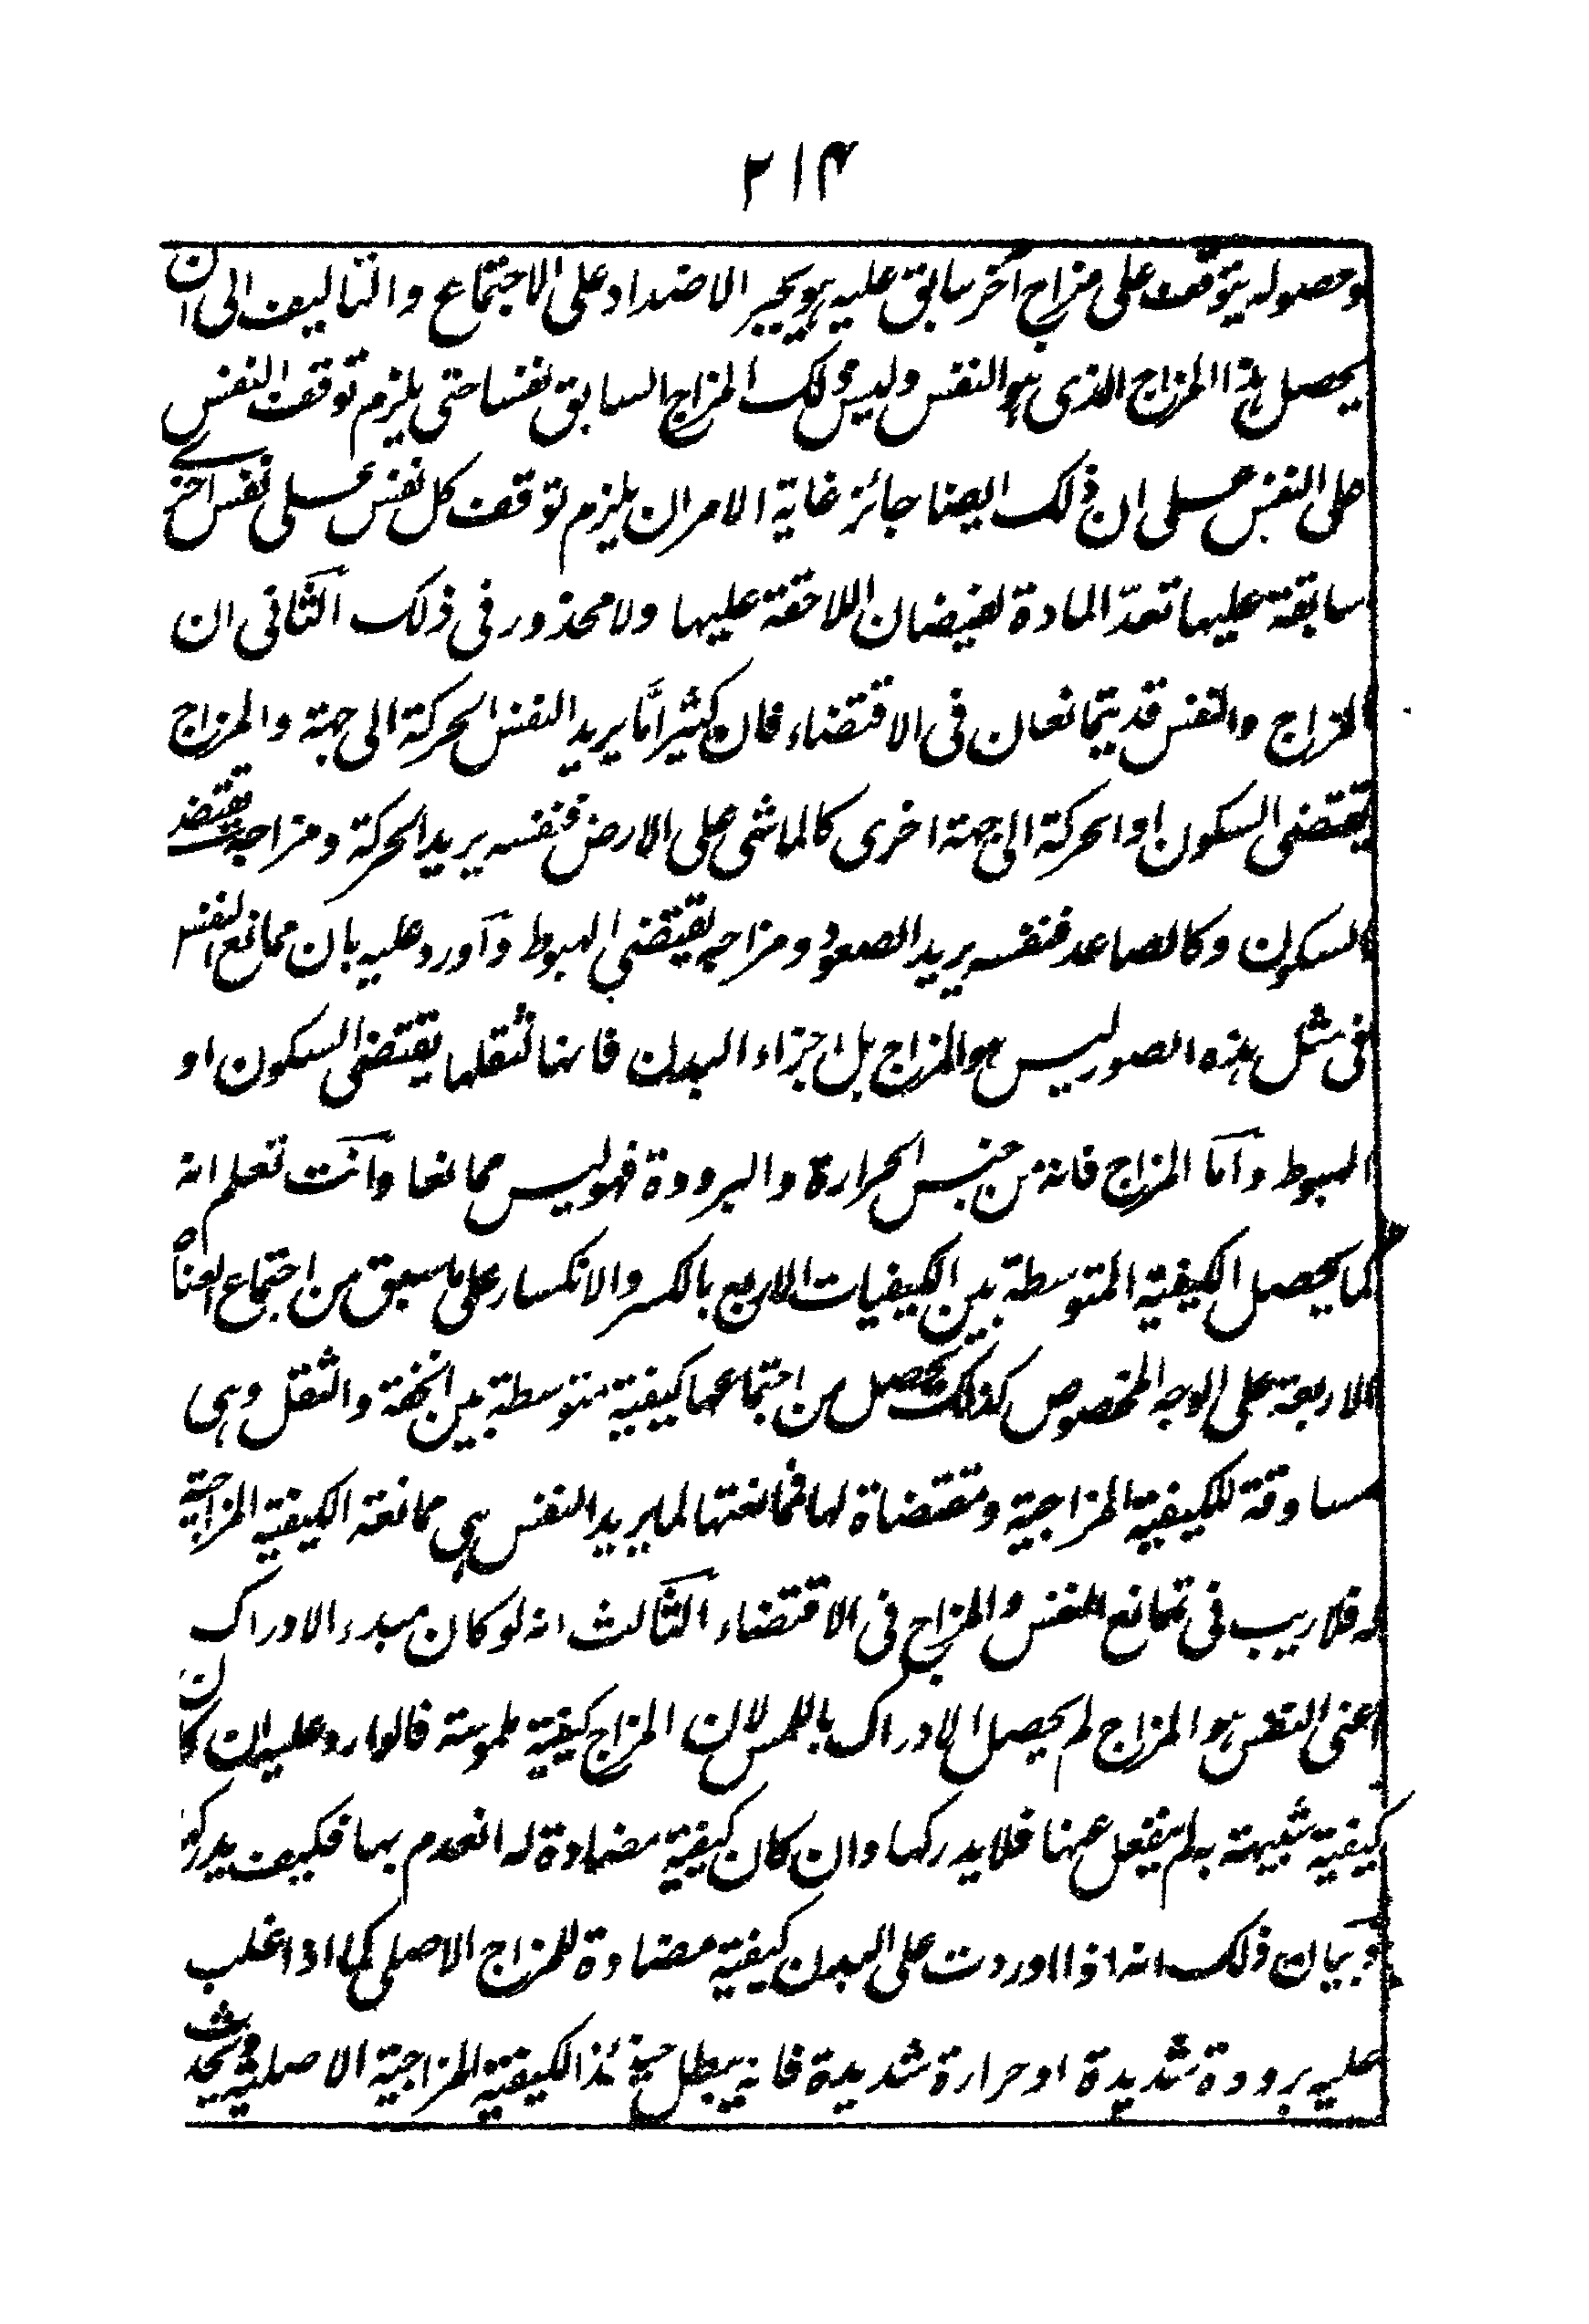 ٢١٤
وحصوله يتوقف على مزاج آخر سابق عليه هو يجبر الاضداد على الاجتماع والتاليف الى ان
يحصل هذا المزاج الذى هو النفس وليس ذلك المزاج السابق نفسا حتى يلزم توقف النفس
على النفس على ان ذلك ايضا جائز غاية الامر ان يلزم توقف كل نفس على نفس اخرى
سابقة عليها تعدّ المادة لفيضان اللاحقة عليها ولا محذور فى ذلك الثانى ان
المزاج والنفس قد يتمانعان فى الاقتضاء فان كثيرا مّا يريد النفس الحركة الى جهة والمزاج
يقتضى السكون او الحركة الى جهة اخرى كالماشى على الارض فنفسه يريد الحركة ومزاجه يقتضى
السكون وكالصاعد فنفسه يريد الصعود ومزاجه يقتضى الهبوط وأورد عليه بان ممانع النفس
فى مثل هذه الصور ليس هو المزاج بل اجزاء البدن فانها لثقلها يقتضى السكون او
الهبوط وأما المزاج فانه من جنس الحرارة والبرودة فهو ليس ممانعا وأنت تعلم انه
كما يحصل الكيفية المتوسطة بين الكيفيات الاربع بالكسر والانكسار على ما سبق من اجتماع العناصر
الاربعة على الوجه المخصوص كذلك يحصل من اجتماعها كيفية متوسطة بين الخفة والثقل وهى
مساوقة للكيفية المزاجية ومقتضاة لها فممانعتها لما يريد النفس هى ممانعة الكيفية المزاجية
له فلا ريب فى تمانع النفس والمزاج فى الاقتضاء الثالث انه لو كان مبدء الادراك
اعنى النفس هو المزاج لم يحصل الادراك باللمس لان المزاج كيفية ملموسة فالوارد عليه ان كان
كيفية شبيهة به لم ينفعل عنها فلا يدركها وان كان كيفية مضادة له انعدم بها فكيف يدركها
وبيان ذلك انه اذا اوردت على البدن كيفية مضادة للمزاج الاصلى كما اذا غلب
عليه برودة شديدة او حرارة شديدة فانه يبطل حينئذ الكيفية المزاجية الاصلية ويحدث